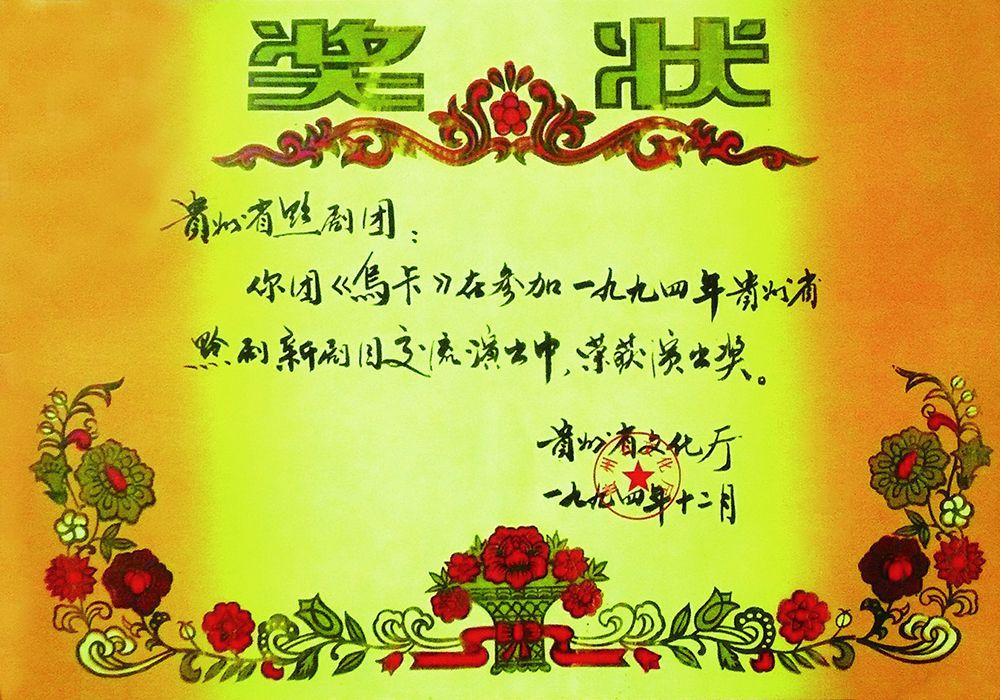 奖状
贵州省黔剧团：
你团《烏卡》在参加一九九四年贵州省
黔剧新剧目交流演出中，荣获演出奖。
贵州省文化厅
一九九四年十二月